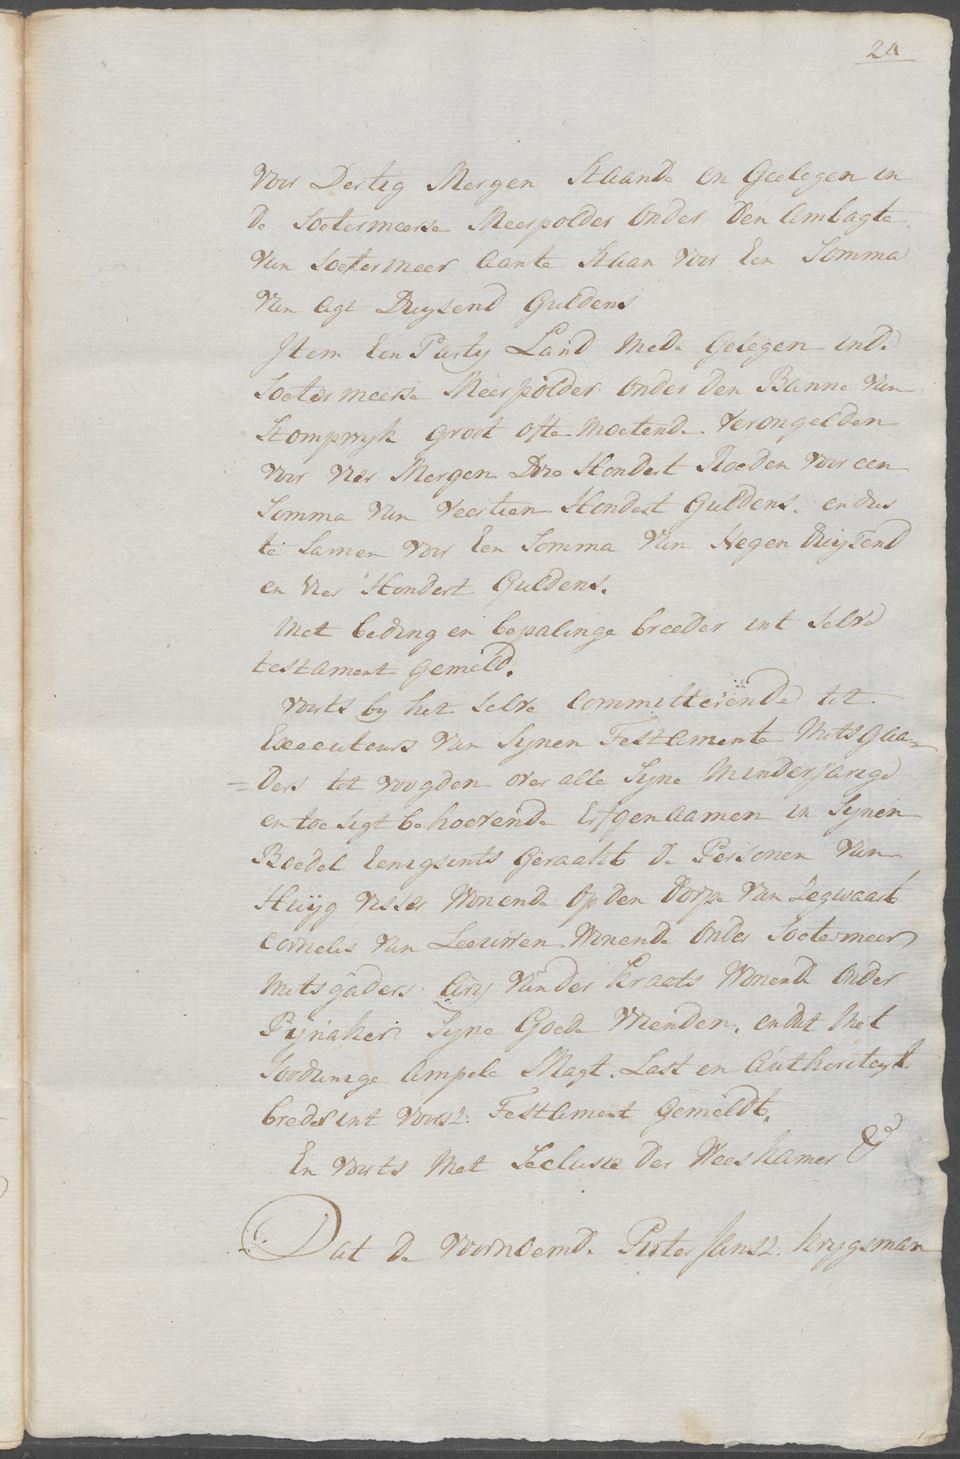 2a
voor Dertig Mergen Staande en Geelegen in
de Soetermeerse Meerpolder onder den Ambagte
van Soetermeer aante Staan voor Een Somma
van Agt Duysend Guldens
Item Een Party Land mede gelegen inde
Soetermeerse Meerpolder onder den Banne van
Stompwyk groot ofte moetende verongelden
voor vier Mergen Drie Hondert Roeden voor een
Somma van Veertien Hondert Guldens. en dus
te Samen voor Een Somma van Negen Duysend
en vier Hondert Guldens.
Met beding en bepalinge breeder int selve
testament gemeld.
voorts by het selve Committerende tot
Executeurs van Synen Testamente Mitsgaa-
=ders tot voogden over alle Syne Minderjarige
en toesigt behoevende Erfgenaamen in Synen
Boedel Eenigsints geraakt de Personen van
Huyg Visser Wonende op den Dorpe van Zegwaart
Cornelis van Leeuwen Wonende onder Soetermeer
Mitsgaders Ary vander Kraats Wonende onder
Pijnaker Syne Goede Vrienden. en dat met
Soodanige Ampele Magt. Last en Authoriteyt
breder int voorsz: Testament gemeldt.
En voorts met Seclusie der Weeskamer &
Dat de voornoemde Pieter Jansz. Krygsman